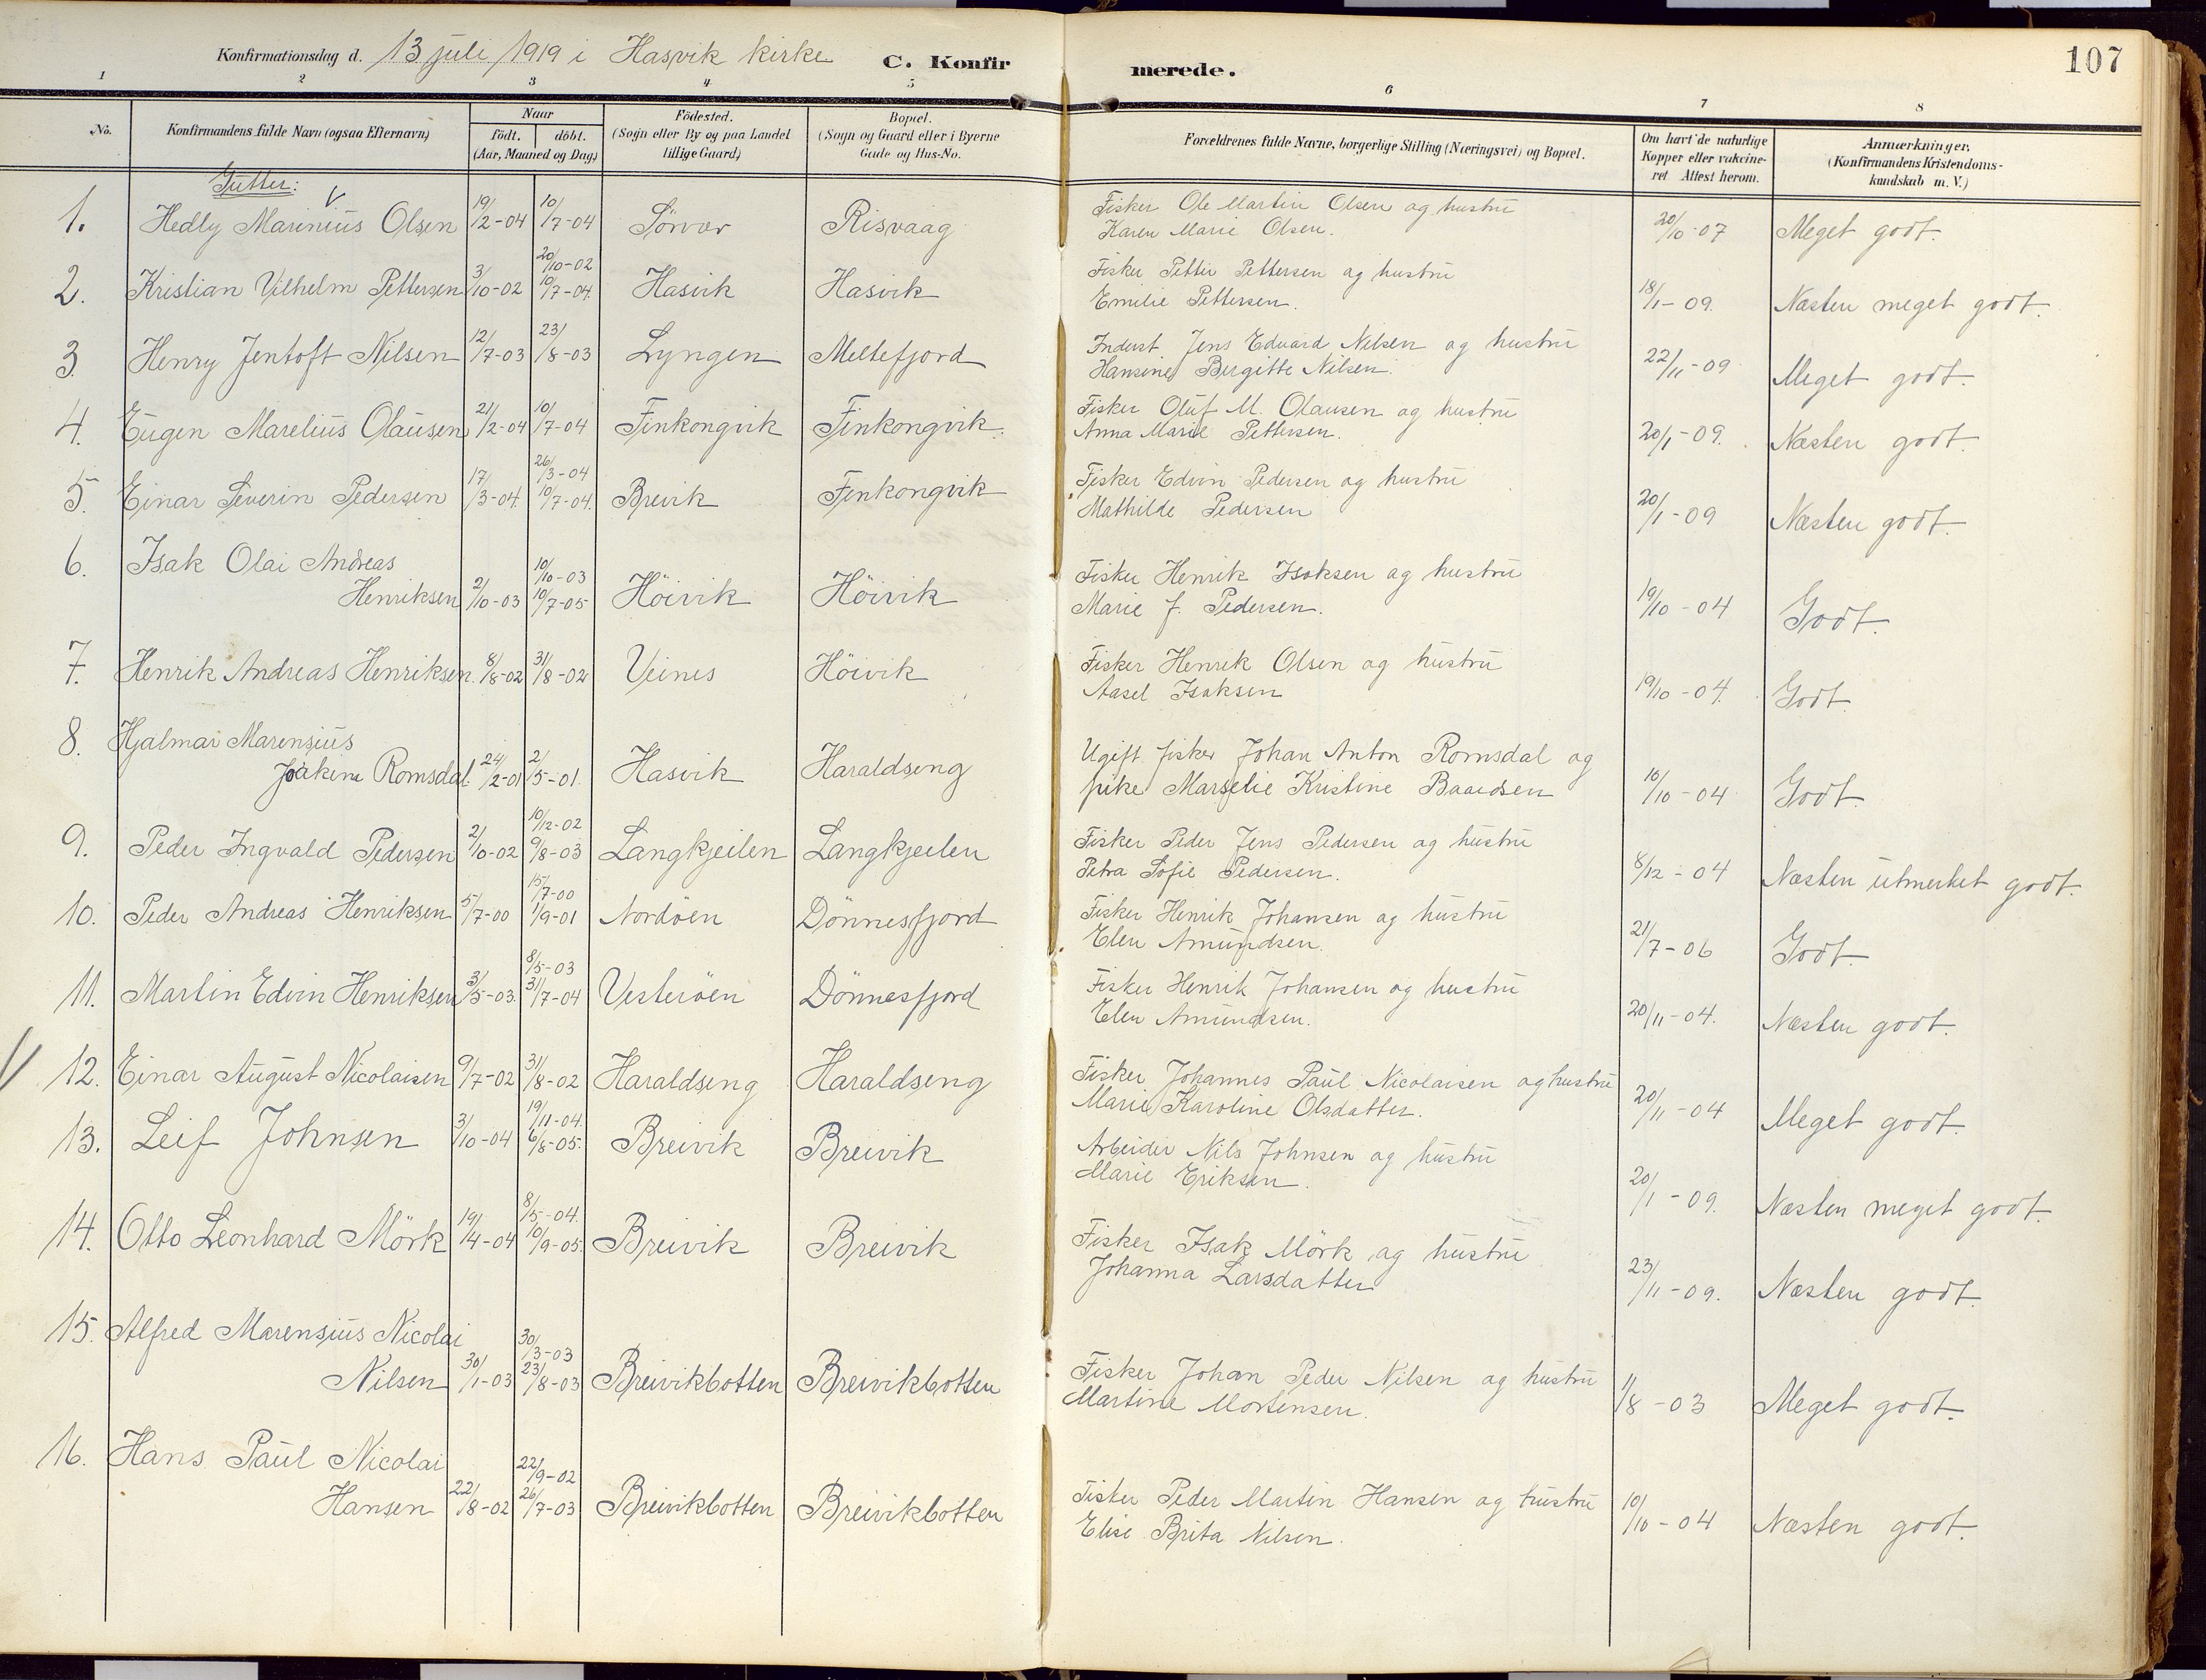 Konfirmationsdag d. 13 juli 1919 i Hasvik kirke C. Konfirmerede. 107
1 2 3 4 5 6 7 8
No. Konfirmandens fulde Navn (ogsaa Efternavn) Naar födt. döbt. (Aar, Maaned og Dag) Födested. (Sogn eller By og paa Landet tillige Gaard) Bopæl. (Sogn og Gaard eller i Byerne Gade og Hus-No. Forældrenes fulde Navne, borgerlige Stilling (Næringsvei) og Bopæl. Om havt de naturlige Kopper eller vakcineret Attest herom. Anmærkninger. (Konfirmandens Kristendomskundskab m. V.)
Gutter:
1. Hedly Marinius Olsen 19/2-04 10/7-04 Sörvær Risvaag Fisker Ole Martin Olsen og hustru
Karen Marie Olsen. 20/10-07 Meget godt.
20/10-02
2. Kristian Vilhelm Pettersen 3/10-02 10/7-04. Hasvik Hasvik Fisker Petter Pettersen og hustru
Emilie Pettersen. 18/1-09. Næsten meget godt.
3. Henry Jentoft Nilsen 12/7-03 23/8-03 Lyngen Meltefjord Inderst Jens Edvard Nilsen og hustru
Hansine Birgitte Nilsen. 22/11-09 Meget godt.
4. Eugen Marelius Olausen 21/2-04 10/7-04 Finkongvik Finkongvik. Fisker Oluf M. Olausen og hustru
Anna Marie Pettersen. 20/1-09. Næsten godt.
26/3-04
5. Einar Severin Pedersen 17/3-04. 10/7-04. Breivik Finkongvik Fisker Edvin Pedersen og hustru
Mathilde Pedersen 20/1-09 Næsten godt.
6. Isak Olai Andreas 10/10-03
Henriksen 2/10-03 10/7-05 Höivik Höivik Fisker Henrik Isaksen og hustru
Marie J. Pedersen. 19/10-04 Godt.
7. Henrik Andreas Henriksen. 8/8-02 31/8-02 Veines Höivik Fisker Henrik Olsen og hustru
Aasel Isaksen 19/10-04. Godt.
8. Hjalmar Marensius
Joakim Romsdal. 24/2-01 2/5-01. Hasvik Haraldseng Ugift fisker Johan Anton Romsdal og
pike Marselie Kristine Baardsen 10/10-04 Godt.
10/12-02
9. Peder Ingvald Pedersen 2/10-02 9/8-03 Langkjeilen Langkjeilen Fisker Peder Jens Pedersen og hustru
Petra Sofie Pedersen. 8/12-04 Næsten utmerket godt.
15/7-00
10. Peder Andreas Henriksen 5/7-00 1/9-01 Nordöen Dönnesfjord Fisker Henrik Johansen og hustru
Elen Amundsen. 21/7-06 Godt.
8/5-03
11. Martin Edvin Henriksen 3/5-03. 31/7-04 Vesteröen Dönnesfjord Fisker Henrik Johansen og hustru
Elen Amundsen. 20/11-04. Næsten godt.
12. Einar August Nicolaisen 9/7-02 31/8-02 Haraldseng Haraldseng Fisker Johannes Paul Nicolaisen og hustru
Marie Karoline Olsdatter. 20/11-04 Meget godt.
19/11-04.
13. Leif Johnsen 3/10-04 6/8-05. Breivik Breivik Arbeider Nils Johnsen og hustru
Marie Eriksen. 20/1-09. Næsten meget godt.
8/5-04.
14. Otto Leonhard Mörk 19/4-04 10/9-05. Breivik Breivik Fisker Isak Mörk og hustru
Johanna Larsdatter 23/11-09. Næsten godt.
15. Alfred Marensius Nicolai 30/3-03
Nilsen 30/1-03 23/8-03 Breivikbotten Breivikbotten Fisker Johan Peder Nilsen og hustru
Martine Mortensen. 11/8-03 Meget godt.
16. Hans Paul Nicolai 22/9-02
Hansen 22/8-02 26/7-03 Breivikbotten Breivikbotten Fisker Peder Martin Hansen og hustru
Elise Brita Nilsen. 10/10-04 Næsten godt.